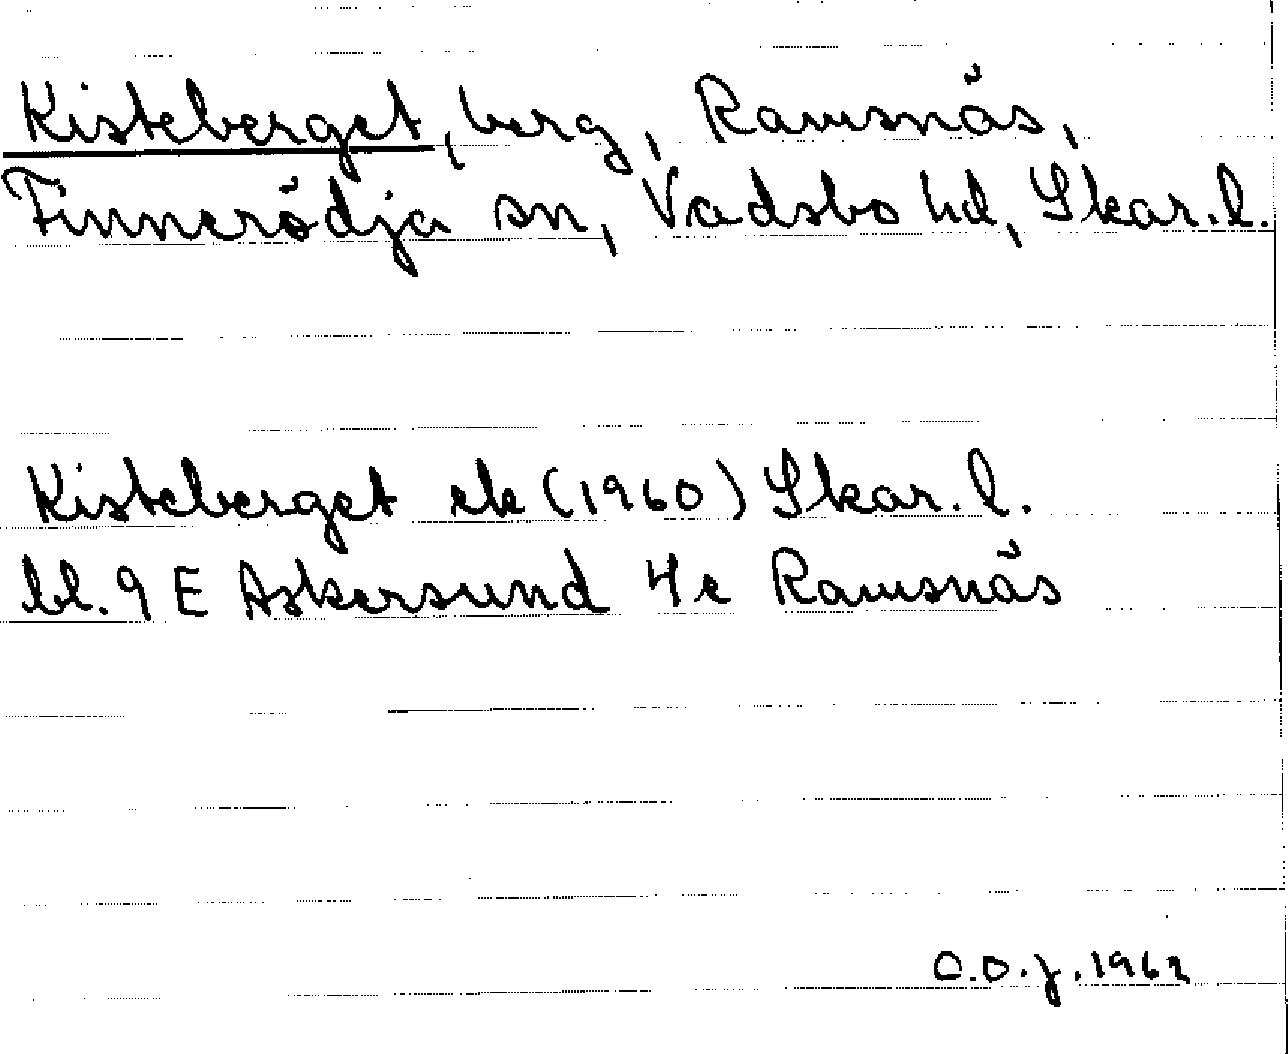 Kisteberget, berg, Ramsnäs,
Finnerödja sn, Vadsbo hd, Skar. l.
Kisteberget ek (1960) Skar. l.
bl. 9 E Askersund 4e Ramsnäs
O.D.J. 1962